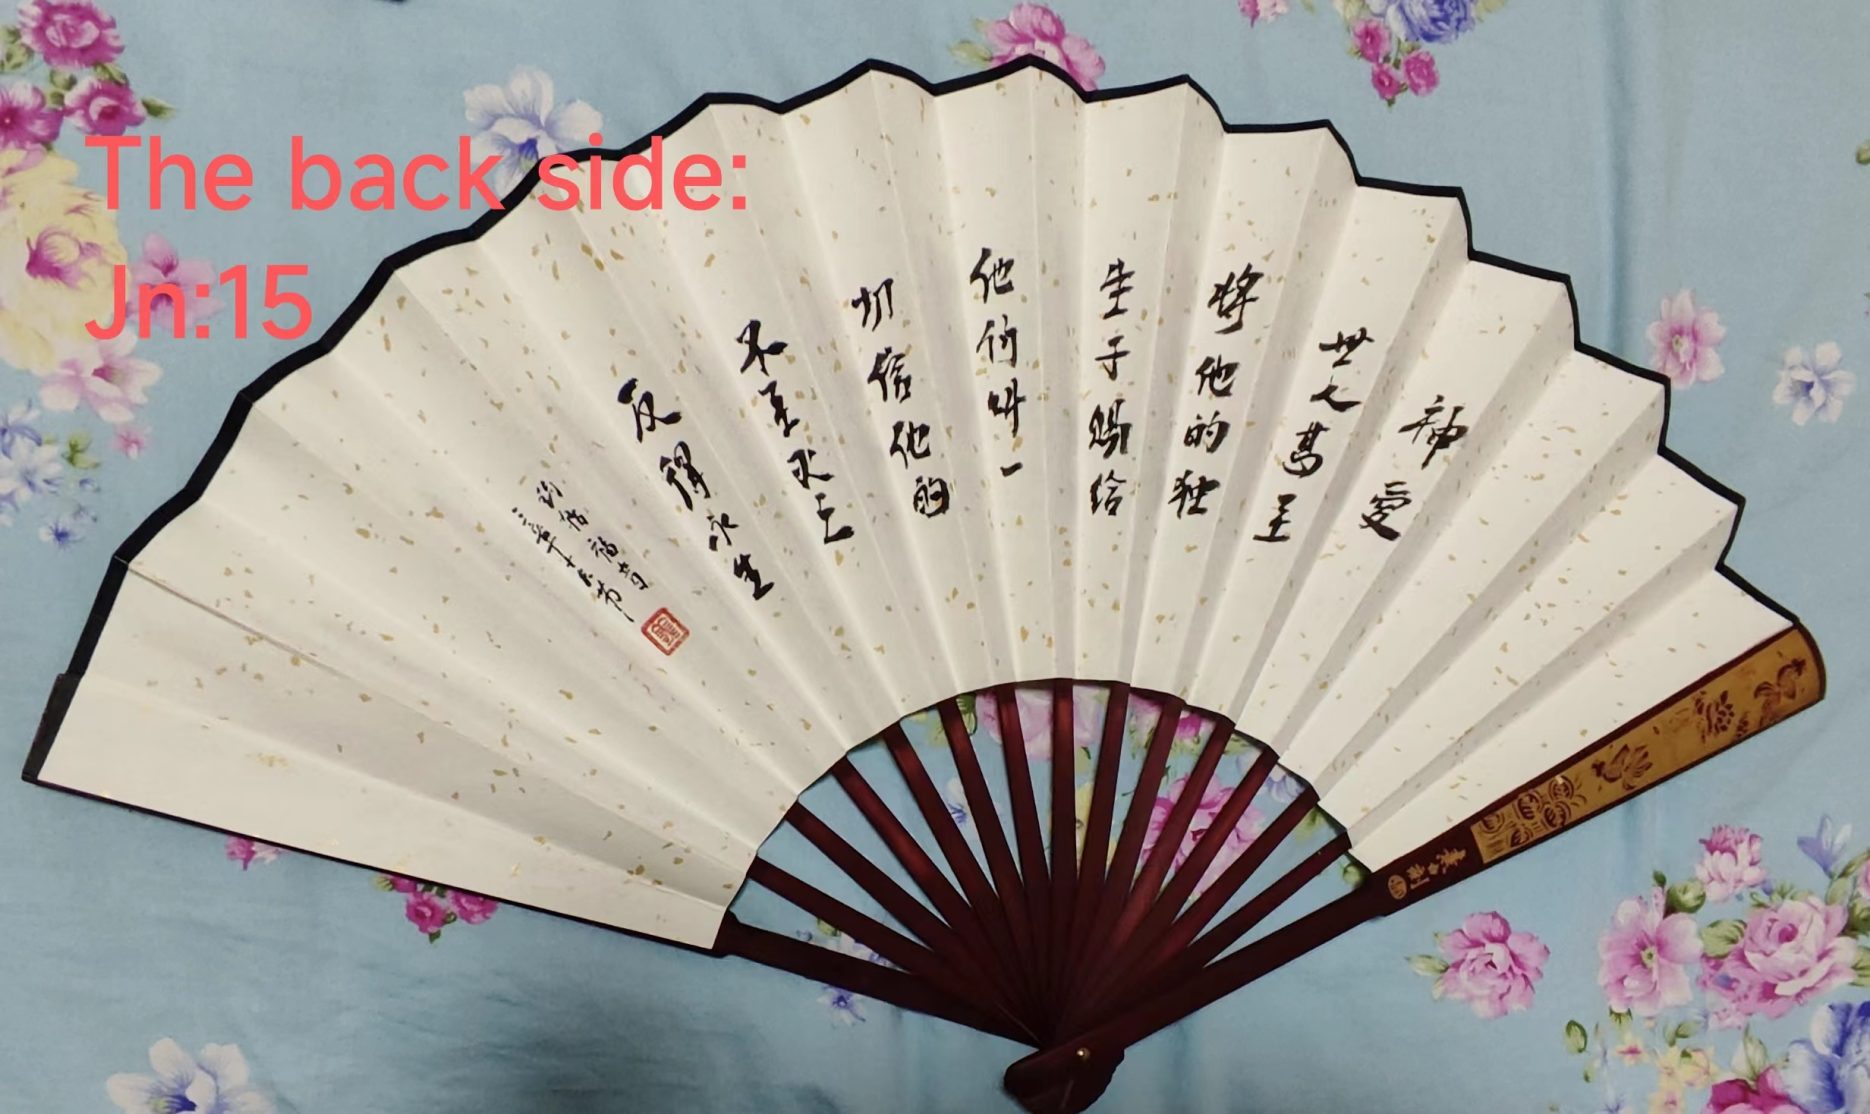 The back side:
Jn:15
神愛
世人甚至
将他的独
生子賜给
他们叫一
切信他的
不至灭亡
反得永生
约翰福音
三章十六节